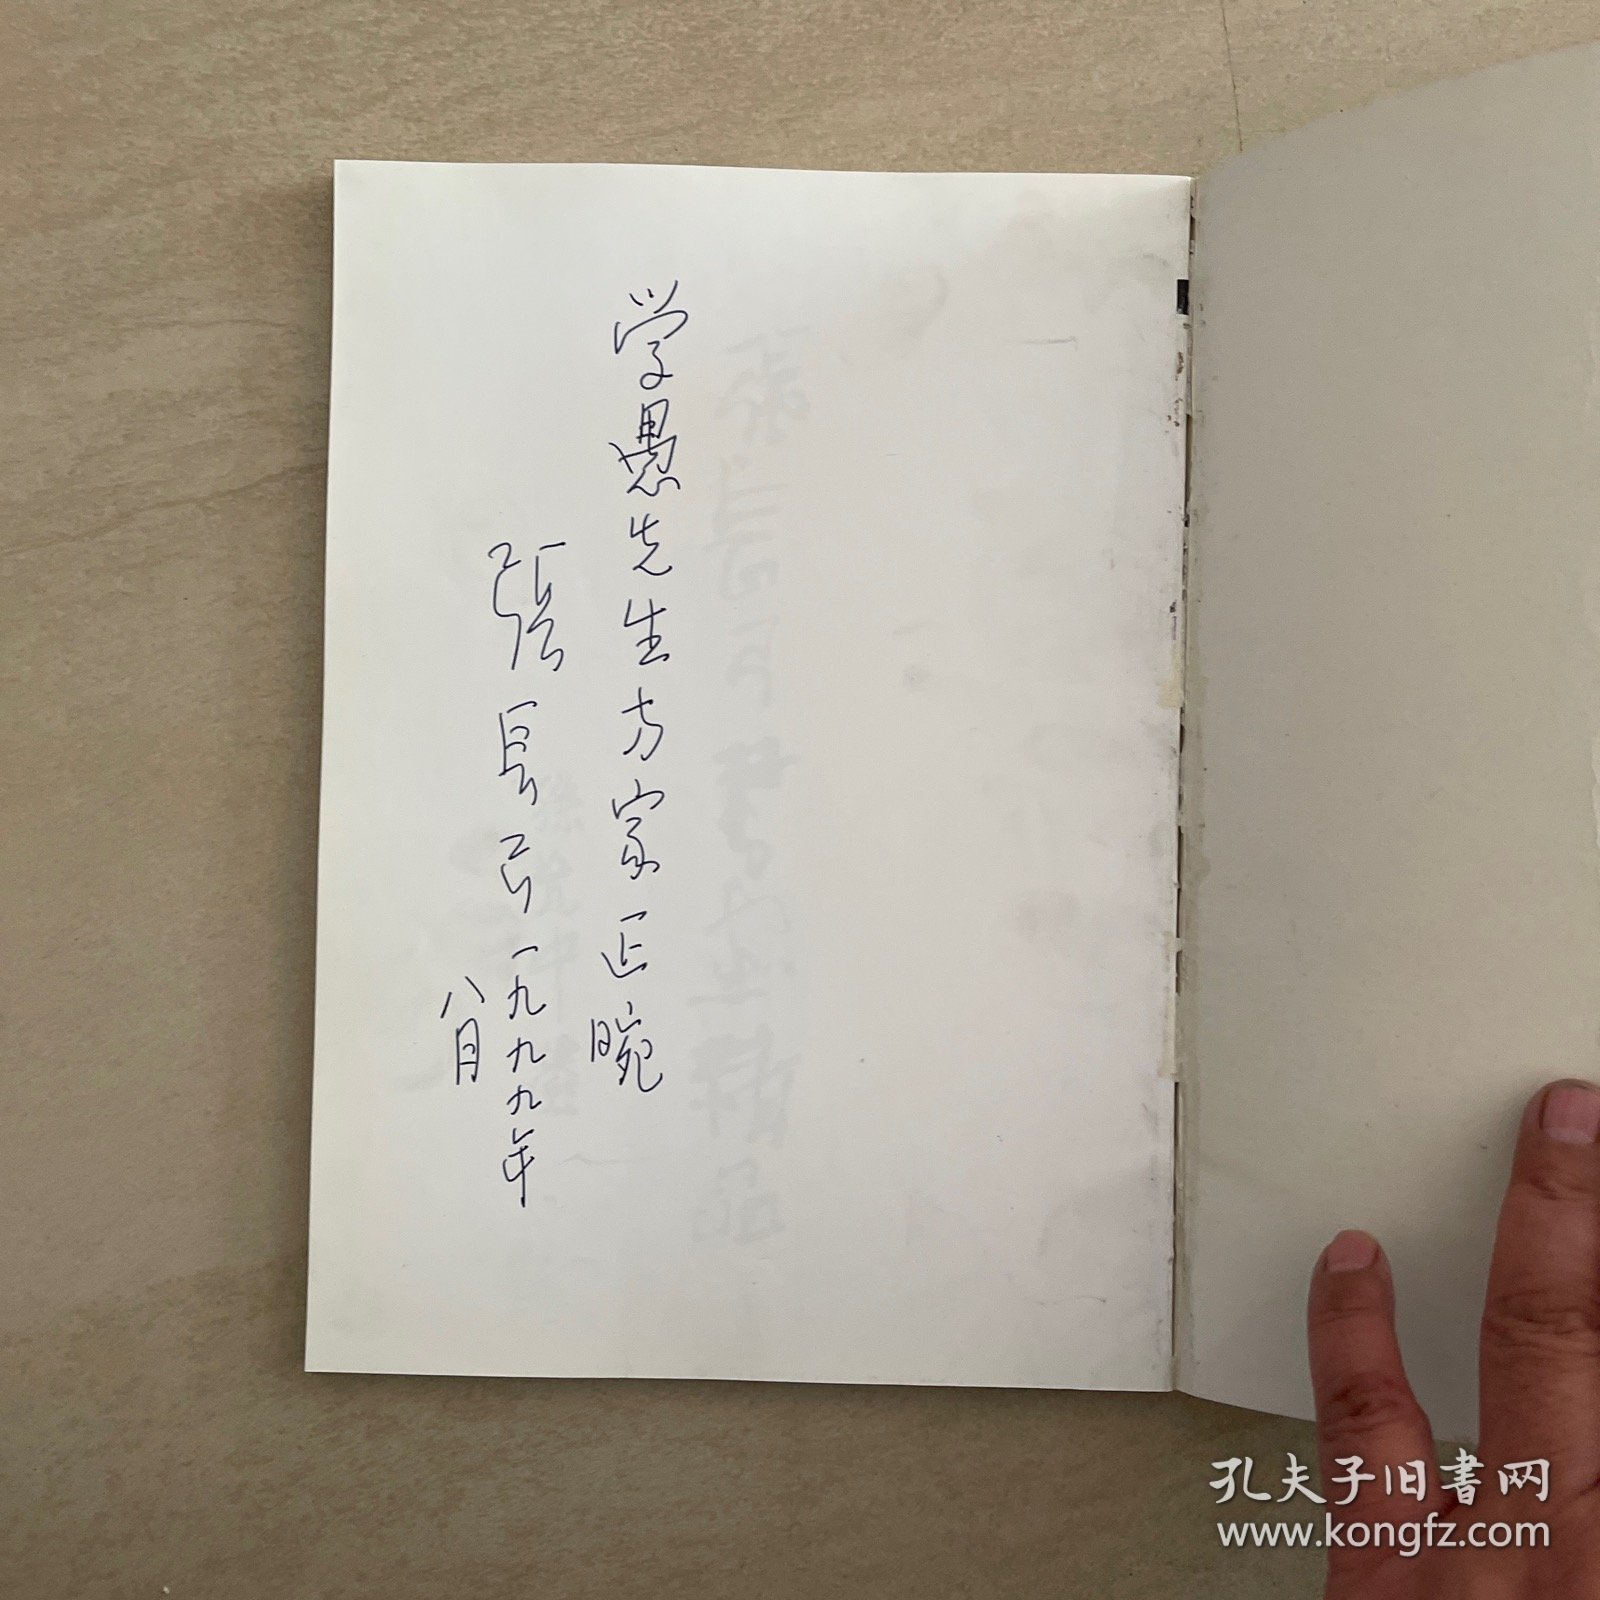 学愚先生方家正晼
張長弓一九九九年
八月
孔夫子旧书网
www.kongfz.com